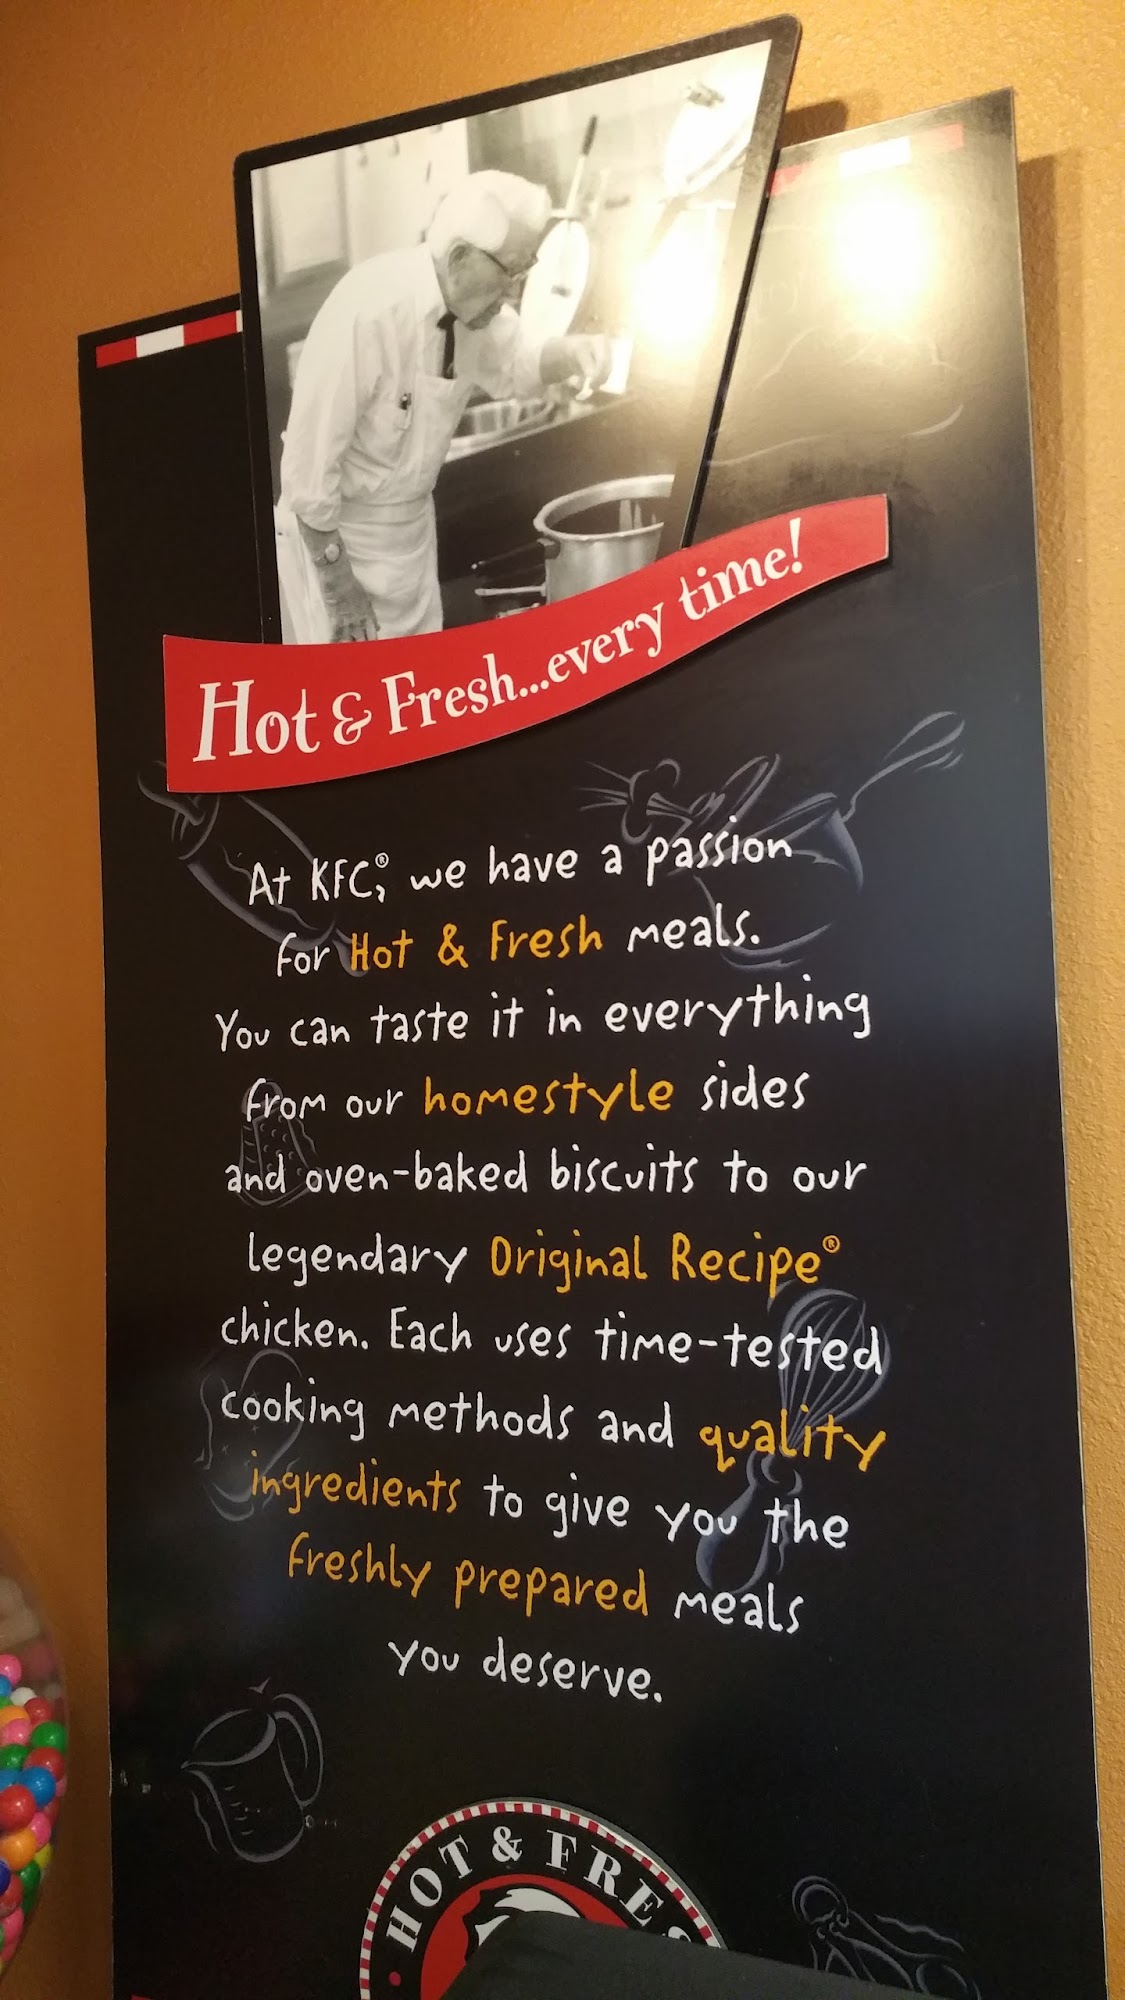 Hot & Fresh...every time!
At KFC®, we have a passion
for Hot & Fresh meals.
You can taste it in everything
from our homestyle sides
and oven-baked biscuits to our
legendary Original Recipe®
chicken. Each uses time-tested
cooking methods and quality
ingredients to give you the
freshly prepared meals
you deserve.
HOT & FRES